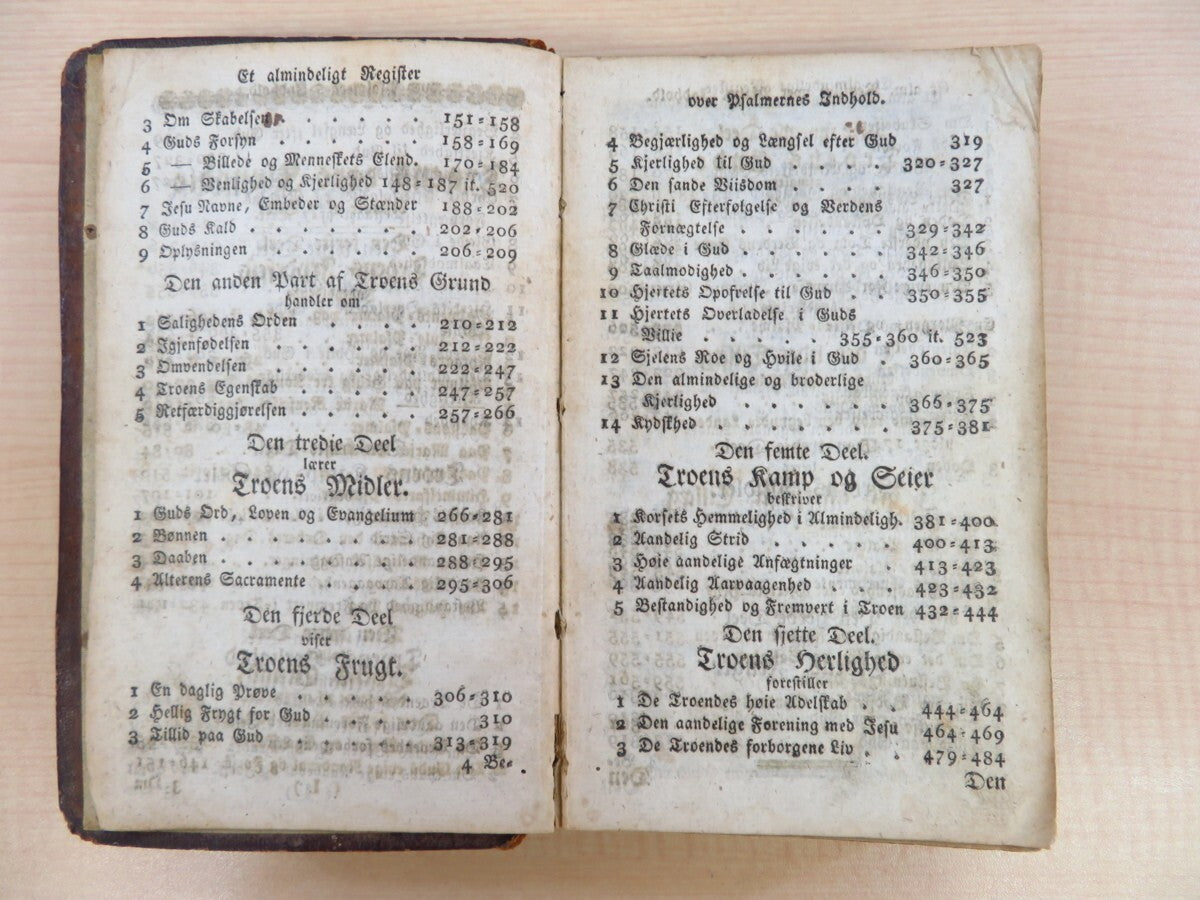 Et almindeligt Register
3 Om Skabelsen . . . . . 151=158
4 Guds Forsyn . . . . . . 158=169
5 — Billede og Menneskets Elend. 170=184
6 — Venlighed og Kjerlighed 148=187 it. 520
7 Jesu Navne, Embeder og Stænder 188=202
8 Guds Kald . . . . . . . 202=206
9 Oplysningen . . . . . . 206=209
Den anden Part af Troens Grund
handler om
1 Salighedens Orden . . . . 210=212
2 Igjenfødelsen . . . . . . 212=222
3 Omvendelsen . . . . . . 222=247
4 Troens Egenskab . . . . . 247=257
5 Retfærdiggjørelsen . . . . . 257=266
Den tredie Deel
lærer
Troens Midler.
1 Guds Ord, Loven og Evangelium 266=281
2 Bønnen . . . . . . . . 281=288
3 Daaben . . . . . . . . 288=295
4 Alterens Sacramente . . . . 295=306
Den fjerde Deel
viser
Troens Frugt.
1 En daglig Prøve . . . . . 306=310
2 Hellig Frygt for Gud . . . . 310
3 Tillid paa Gud . . . . . . 313=319
4 Be=
over Psalmernes Indhold.
4 Begjærlighed og Længsel efter Gud 319
5 Kjerlighed til Gud . . . . 320=327
6 Den sande Viisdom . . . . 327
7 Christi Efterfølgelse og Verdens
Fornægtelse . . . . . . 329=342
8 Glæde i Gud . . . . . . 342=346
9 Taalmodighed . . . . . . 346=350
10 Hjertets Opofrelse til Gud . . 350=355
11 Hjertets Overladelse i Guds
Villie . . . . . 355=360 it. 523
12 Sjelens Roe og Hvile i Gud . 360=365
13 Den almindelige og broderlige
Kjerlighed . . . . . . 366=375
14 Kydskhed . . . . . . . 375=381
Den femte Deel.
Troens Kamp og Seier
beskriver
1 Korsets Hemmelighed i Almindeligh. 381=400
2 Aandelig Strid . . . . . 400=413
3 Høie aandelige Anfægtninger . 413=423
4 Aandelig Aarvaagenhed . . . 423=432
5 Bestandighed og Fremvext i Troen 432=444
Den sjette Deel.
Troens Herlighed
forestiller
1 De Troendes høie Adelskab . . 444=464
2 Den aandelige Forening med Jesu 464=469
3 De Troendes forborgene Liv . . 479=484
Den